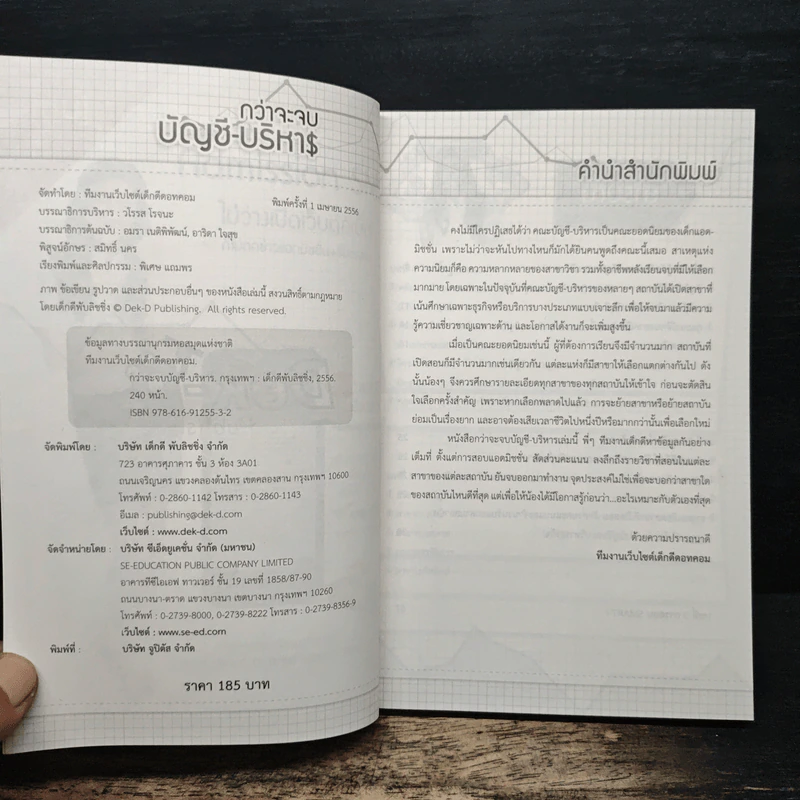 กว่าจะจบ
บัญชี-บริหา$
จัดทำโดย : ทีมงานเว็บไซต์เด็กดีดอทคอม
พิมพ์ครั้งที่ 1 เมษายน 2556
บรรณาธิการบริหาร : วโรรส โรจนะ
บรรณาธิการต้นฉบับ : อมรา เนติพิพัฒน์, อาริดา ใจสุข
พิสูจน์อักษร : สมิทธิ์ นคร
เรียงพิมพ์และศิลปกรรม : พิเศษ แถมพร
ภาพ ข้อเขียน รูปวาด และส่วนประกอบอื่นๆ ของหนังสือเล่มนี้ สงวนสิทธิ์ตามกฎหมาย
โดยเด็กดีพับลิชชิ่ง © Dek-D Publishing. All rights reserved.
ข้อมูลทางบรรณานุกรมหอสมุดแห่งชาติ
ทีมงานเว็บไซต์เด็กดีดอทคอม.
กว่าจะจบบัญชี-บริหาร. กรุงเทพฯ : เด็กดีพับลิชชิ่ง, 2556.
240 หน้า.
ISBN 978-616-91255-3-2
จัดพิมพ์โดย : บริษัท เด็กดี พับลิชชิ่ง จำกัด
723 อาคารศุภาคาร ชั้น 3 ห้อง 3A01
ถนนเจริญนคร แขวงคลองต้นไทร เขตคลองสาน กรุงเทพฯ 10600
โทรศัพท์ : 0-2860-1142 โทรสาร : 0-2860-1143
อีเมล : publishing@dek-d.com
เว็บไซต์ : www.dek-d.com
จัดจำหน่ายโดย : บริษัท ซีเอ็ดยูเคชั่น จำกัด (มหาชน)
SE-EDUCATION PUBLIC COMPANY LIMITED
อาคารทีซีไอเอฟ ทาวเวอร์ ชั้น 19 เลขที่ 1858/87-90
ถนนบางนา-ตราด แขวงบางนา เขตบางนา กรุงเทพฯ 10260
โทรศัพท์ : 0-2739-8000, 0-2739-8222 โทรสาร : 0-2739-8356-9
เว็บไซต์ : www.se-ed.com
พิมพ์ที่ : บริษัท จูปิตัส จำกัด
ราคา 185 บาท
คำนำสำนักพิมพ์
คงไม่มีใครปฏิเสธได้ว่า คณะบัญชี-บริหารเป็นคณะยอดนิยมของเด็กแอด-
มิชชั่น เพราะไม่ว่าจะหันไปทางไหนก็มักได้ยินคนพูดถึงคณะนี้เสมอ สาเหตุแห่ง
ความนิยมก็คือ ความหลากหลายของสาขาวิชา รวมทั้งอาชีพหลังเรียนจบที่มีให้เลือก
มากมาย โดยเฉพาะในปัจจุบันที่คณะบัญชี-บริหารของหลายๆ สถาบันได้เปิดสาขาที่
เน้นศึกษาเฉพาะธุรกิจหรือบริการบางประเภทแบบเจาะลึก เพื่อให้จบมาแล้วมีความ
รู้ความเชี่ยวชาญเฉพาะด้าน และโอกาสได้งานก็จะเพิ่มสูงขึ้น
เมื่อเป็นคณะยอดนิยมเช่นนี้ ผู้ที่ต้องการเรียนจึงมีจำนวนมาก สถาบันที่
เปิดสอนก็มีจำนวนมากเช่นเดียวกัน แต่ละแห่งก็มีสาขาให้เลือกแตกต่างกันไป ดัง
นั้นน้องๆ จึงควรศึกษารายละเอียดทุกสาขาของทุกสถาบันให้เข้าใจ ก่อนจะตัดสิน
ใจเลือกครั้งสำคัญ เพราะหากเลือกพลาดไปแล้ว การจะย้ายสาขาหรือย้ายสถาบัน
ย่อมเป็นเรื่องยาก และอาจต้องเสียเวลาชีวิตไปหนึ่งปีหรือมากกว่านั้นเพื่อเลือกใหม่
หนังสือกว่าจะจบบัญชี-บริหารเล่มนี้ พี่ๆ ทีมงานเด็กดีหาข้อมูลกันอย่าง
เต็มที่ ตั้งแต่การสอบแอดมิชชั่น สัดส่วนคะแนน ลงลึกถึงรายวิชาที่สอนในแต่ละ
สาขาของแต่ละสถาบัน ยันจบออกมาทำงาน จุดประสงค์ไม่ใช่เพื่อจะบอกว่าสาขาใด
ของสถาบันไหนดีที่สุด แต่เพื่อให้น้องได้มีโอกาสรู้ก่อนว่า...อะไรเหมาะกับตัวเองที่สุด
ด้วยความปรารถนาดี
ทีมงานเว็บไซต์เด็กดีดอทคอม